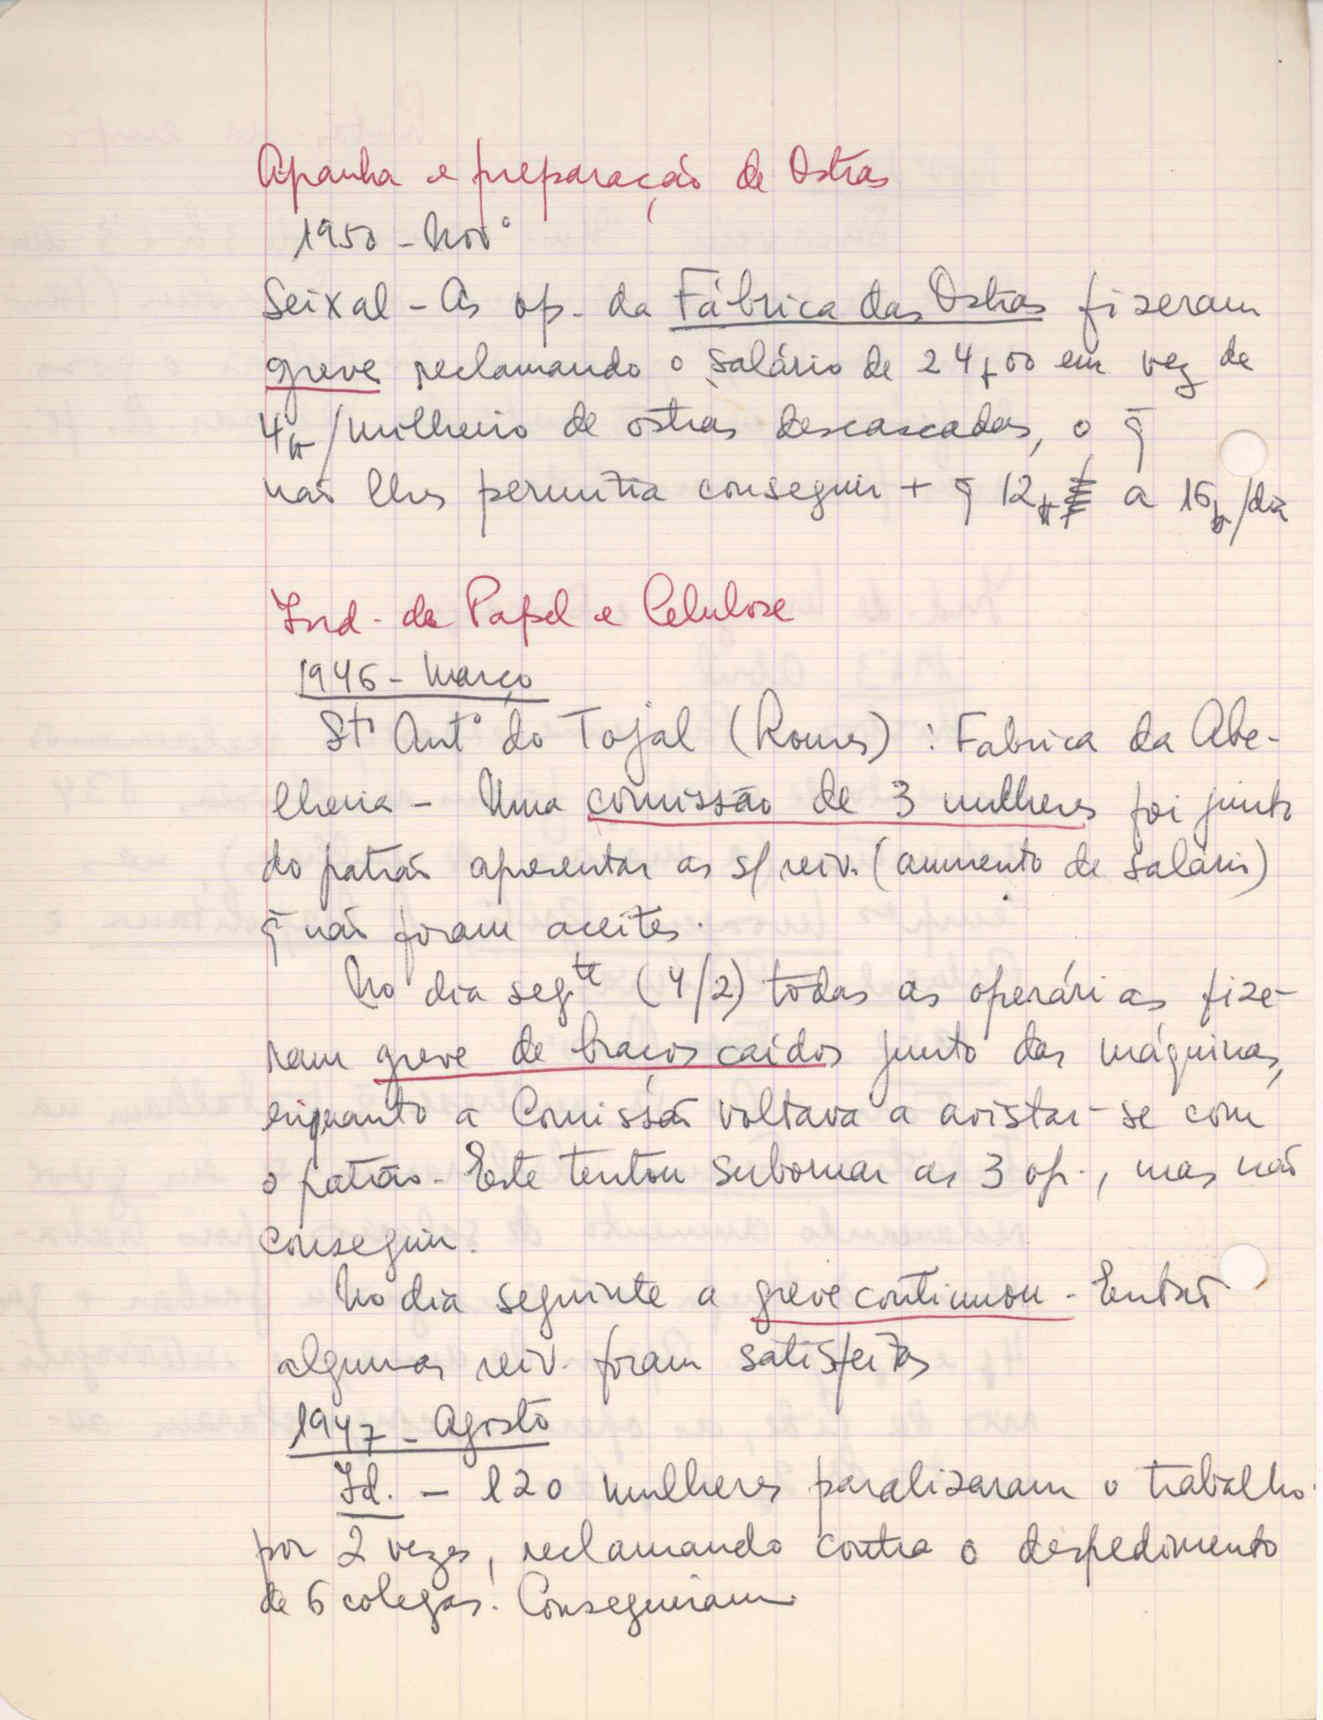 Apanha e preparação de Ostras
1950 - Novº
Seixal - As op. da Fábrica das Ostras fizeram
greve reclamando o salário de 24$00 em vez de
4$/milheiro de ostras descascadas, o q̄
não lhes permitia conseguir + q̄ 12$ a 16$/dia
Ind. de Papel e Celulose
1946 - Março
Stº Antº do Tojal (Loures) : Fabrica da Abe-
lheira - Uma comissão de 3 mulheres foi junto
do patrão apresentar as s/ reiv. (aumento de salário)
q̄ não foram aceites.
No dia segte (4/2) todas as operárias fize-
ram greve de braços caídos junto das máquinas,
enquanto a Comissão voltava a avistar-se com
o patrão. Este tentou subornar as 3 op., mas não
conseguiu.
No dia seguinte a greve continuou. Então
algumas reiv. foram satisfeitas
1947 - Agosto
Id. - 120 mulheres paralizaram o trabalho
por 2 vezes, reclamando contra o despedimento
de 6 colegas. Conseguiram.